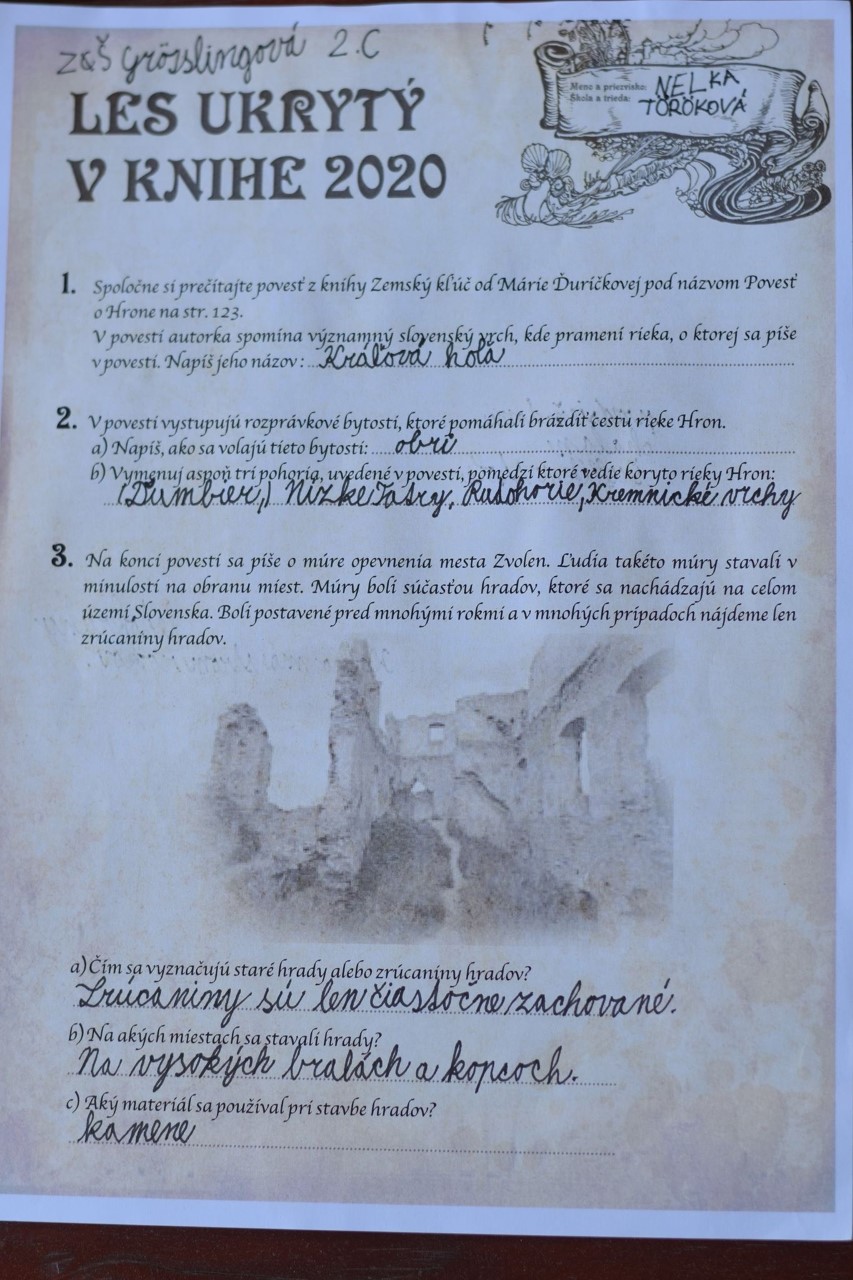 ZŠ Grösslingová 2.C
LES UKRYTÝ
V KNIHE 2020
Meno a priezvisko: NELKA
Škola a trieda: TÖRÖKOVÁ
1. Spoločne si prečítajte povesť z knihy Zemský kľúč od Márie Ďuríčkovej pod názvom Povesť
o Hrone na str. 123.
V povesti autorka spomína významný slovenský vrch, kde pramení rieka, o ktorej sa píše
v povesti. Napíš jeho názov : Kráľová hoľa
2. V povesti vystupujú rozprávkové bytosti, ktoré pomáhali brázdiť cestu rieke Hron.
a) Napíš, ako sa volajú tieto bytosti: obri
b) Vymenuj aspoň tri pohoria, uvedené v povesti, pomedzi ktoré vedie koryto rieky Hron:
(Ďumbier,) Nízke Tatry, Rudohorie, Kremnické vrchy
3. Na konci povesti sa píše o múre opevnenia mesta Zvolen. Ľudia takéto múry stavali v
minulosti na obranu miest. Múry boli súčasťou hradov, ktoré sa nachádzajú na celom
území Slovenska. Boli postavené pred mnohými rokmi a v mnohých prípadoch nájdeme len
zrúcaniny hradov.
a) Čím sa vyznačujú staré hrady alebo zrúcaniny hradov?
Zrúcaniny sú len čiastočne zachované.
b) Na akých miestach sa stavali hrady?
Na vysokých bralách a kopcoch.
c) Aký materiál sa používal pri stavbe hradov?
kamene